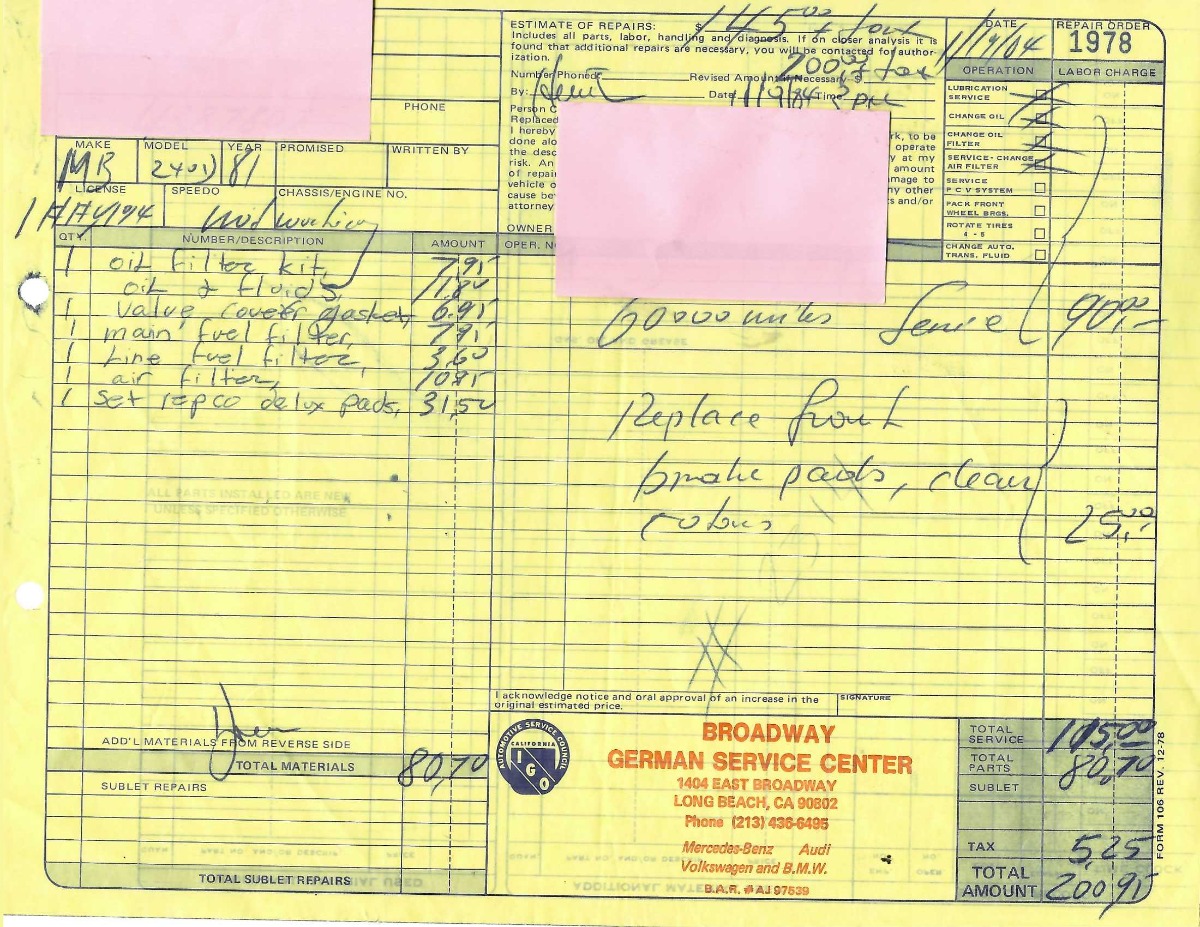 ESTIMATE OF REPAIRS: $ 145.00 + tax
Includes all parts, labor, handling and diagnosis. If on closer analysis it is
found that additional repairs are necessary, you will be contacted for author-
ization.
Number Phoned: Revised Amount if Necessary $ 200.00 + tax
By: Date Time 2 PM
DATE
REPAIR ORDER
1978
OPERATION LABOR CHARGE
LUBRICATION
SERVICE
CHANGE OIL
CHANGE OIL
FILTER
SERVICE - CHANGE
AIR FILTER
SERVICE
P C V SYSTEM
PACK FRONT
WHEEL BRGS.
ROTATE TIRES
4 - 5
CHANGE AUTO.
TRANS. FLUID
PHONE
Person C
Replaced
I hereby rk, to be
done alo operate
the desc y at my
risk. An amount
of repair amage to
vehicle o ny other
cause bey ts and/or
attorney
OWNER
MAKE MODEL YEAR PROMISED WRITTEN BY
MB 240D 81
LICENSE SPEEDO CHASSIS/ENGINE NO.
not working
QTY. NUMBER/DESCRIPTION AMOUNT OPER. N
1 oil filter kit, 7,95
oil & fluids, 11,80
1 valve cover gasket, 6,95
1 main fuel filter, 7,95
1 Line fuel filter, 3,60
1 air filter, 10,95
1 Set repco delux pads, 31,50
60000 miles Service 90,00
Replace front
brake pads, clean
rotors 25,00
ALL PARTS INSTALLED ARE NEW
UNLESS SPECIFIED OTHERWISE
I acknowledge notice and oral approval of an increase in the
original estimated price.
SIGNATURE
ADD'L MATERIALS FROM REVERSE SIDE
TOTAL MATERIALS 80,70
SUBLET REPAIRS
TOTAL SUBLET REPAIRS
AUTOMOTIVE SERVICE COUNCIL
CALIFORNIA
IGO
BROADWAY
GERMAN SERVICE CENTER
1404 EAST BROADWAY
LONG BEACH, CA 90802
Phone (213) 436-6495
Mercedes-Benz Audi
Volkswagen and B.M.W.
B.A.R. # AJ 97539
TOTAL
SERVICE 115,00
TOTAL
PARTS 80,70
SUBLET
TAX 5,25
TOTAL
AMOUNT 200,95
FORM 106 REV. 12-78